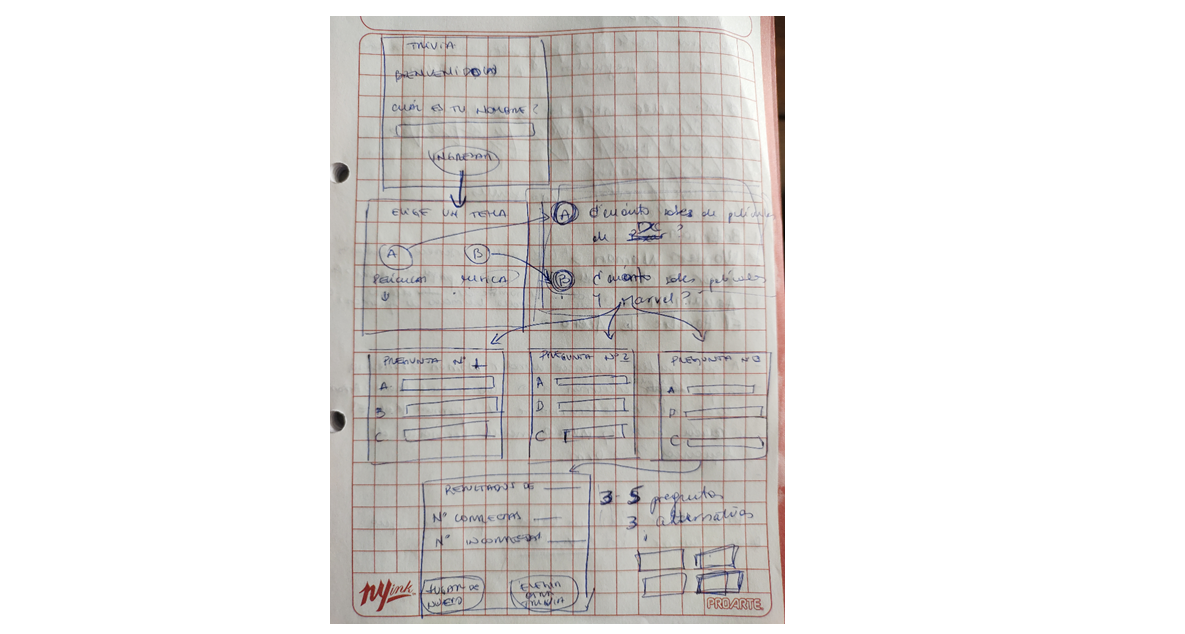 TRIVIA
BIENVENIDO(A)
CUÁL ES TU NOMBRE?
INGRESAR
ELIGE UN TEMA
A
B
PELICULAS
MUSICA
A ¿Cuánto sabes de películas
de DC ?
B ¿Cuánto sabes películas
Marvel?
PREGUNTA Nº 1
A
B
C
PREGUNTA Nº 2
A
D
C
PREGUNTA Nº
A
C
RESULTADOS DE
Nº CORRECTAS
Nº INCORRECTAS
JUGAR DE
NUEVO
OTRA
TRIVIA
3 - 5 preguntas
3 alternativas
NYink.
PROARTE